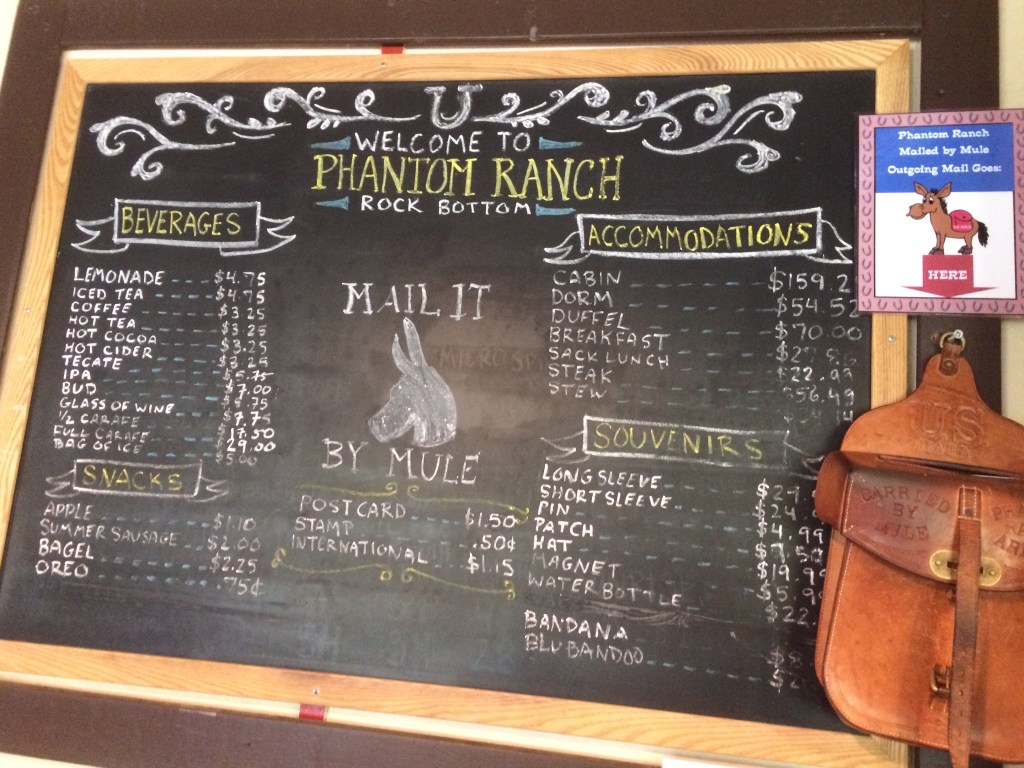 WELCOME TO
PHANTOM RANCH
ROCK BOTTOM
BEVERAGES
LEMONADE $4.75
ICED TEA $4.75
COFFEE $3.25
HOT TEA $3.25
HOT COCOA $3.25
HOT CIDER $3.25
TECATE
IPA $7.00
BUD
GLASS OF WINE $7.75
1/2 CARAFE
FULL CARAFE 29.00
BAG OF ICE 5.00
SNACKS
APPLE $1.10
SUMMER SAUSAGE $2.00
BAGEL $2.25
OREO .75¢
MAIL IT
BY MULE
POSTCARD $1.50
STAMP .50¢
INTERNATIONAL $1.15
ACCOMMODATIONS
CABIN $159.2
DORM $54.52
DUFFEL $70.00
BREAKFAST
SACK LUNCH
STEAK $56.49
STEW
SOUVENIRS
LONG SLEEVE
SHORT SLEEVE
PIN
PATCH
HAT
MAGNET
WATER BOTTLE $22.
BANDANA
BLUBANDOO
Phantom Ranch
Mailed by Mule
Outgoing Mail Goes:
HERE
US
CARRIED
BY
MULE